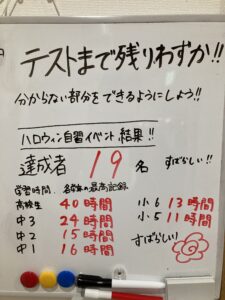 テストまで残りわずか!!
分からない部分をできるようにしよう!!
ハロウィン自習イベント結果!!
達成者 19 名 すばらしい!!
学習時間 各学年の最高記録
高校生 40時間
中3 24時間
中2 15時間
中1 16時間
小6 13時間
小5 11時間
すばらしい